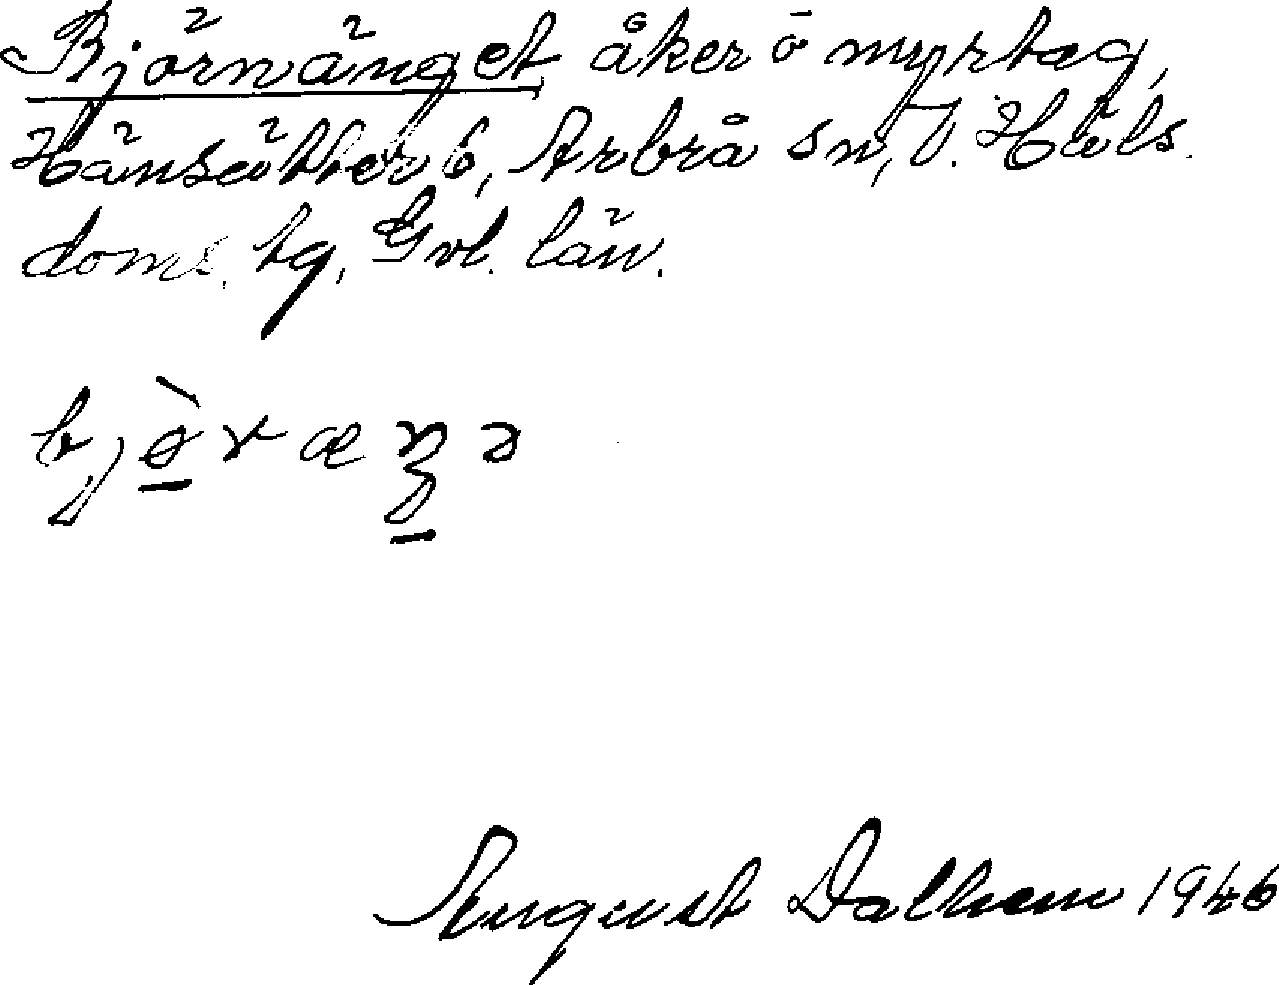 Björnänget åker o myrtag,
Hänsätter 6, Arbrå sn, V. Häls.
doms. tg, Gvl. län.
bjøræŋə
August Dalhem 1946